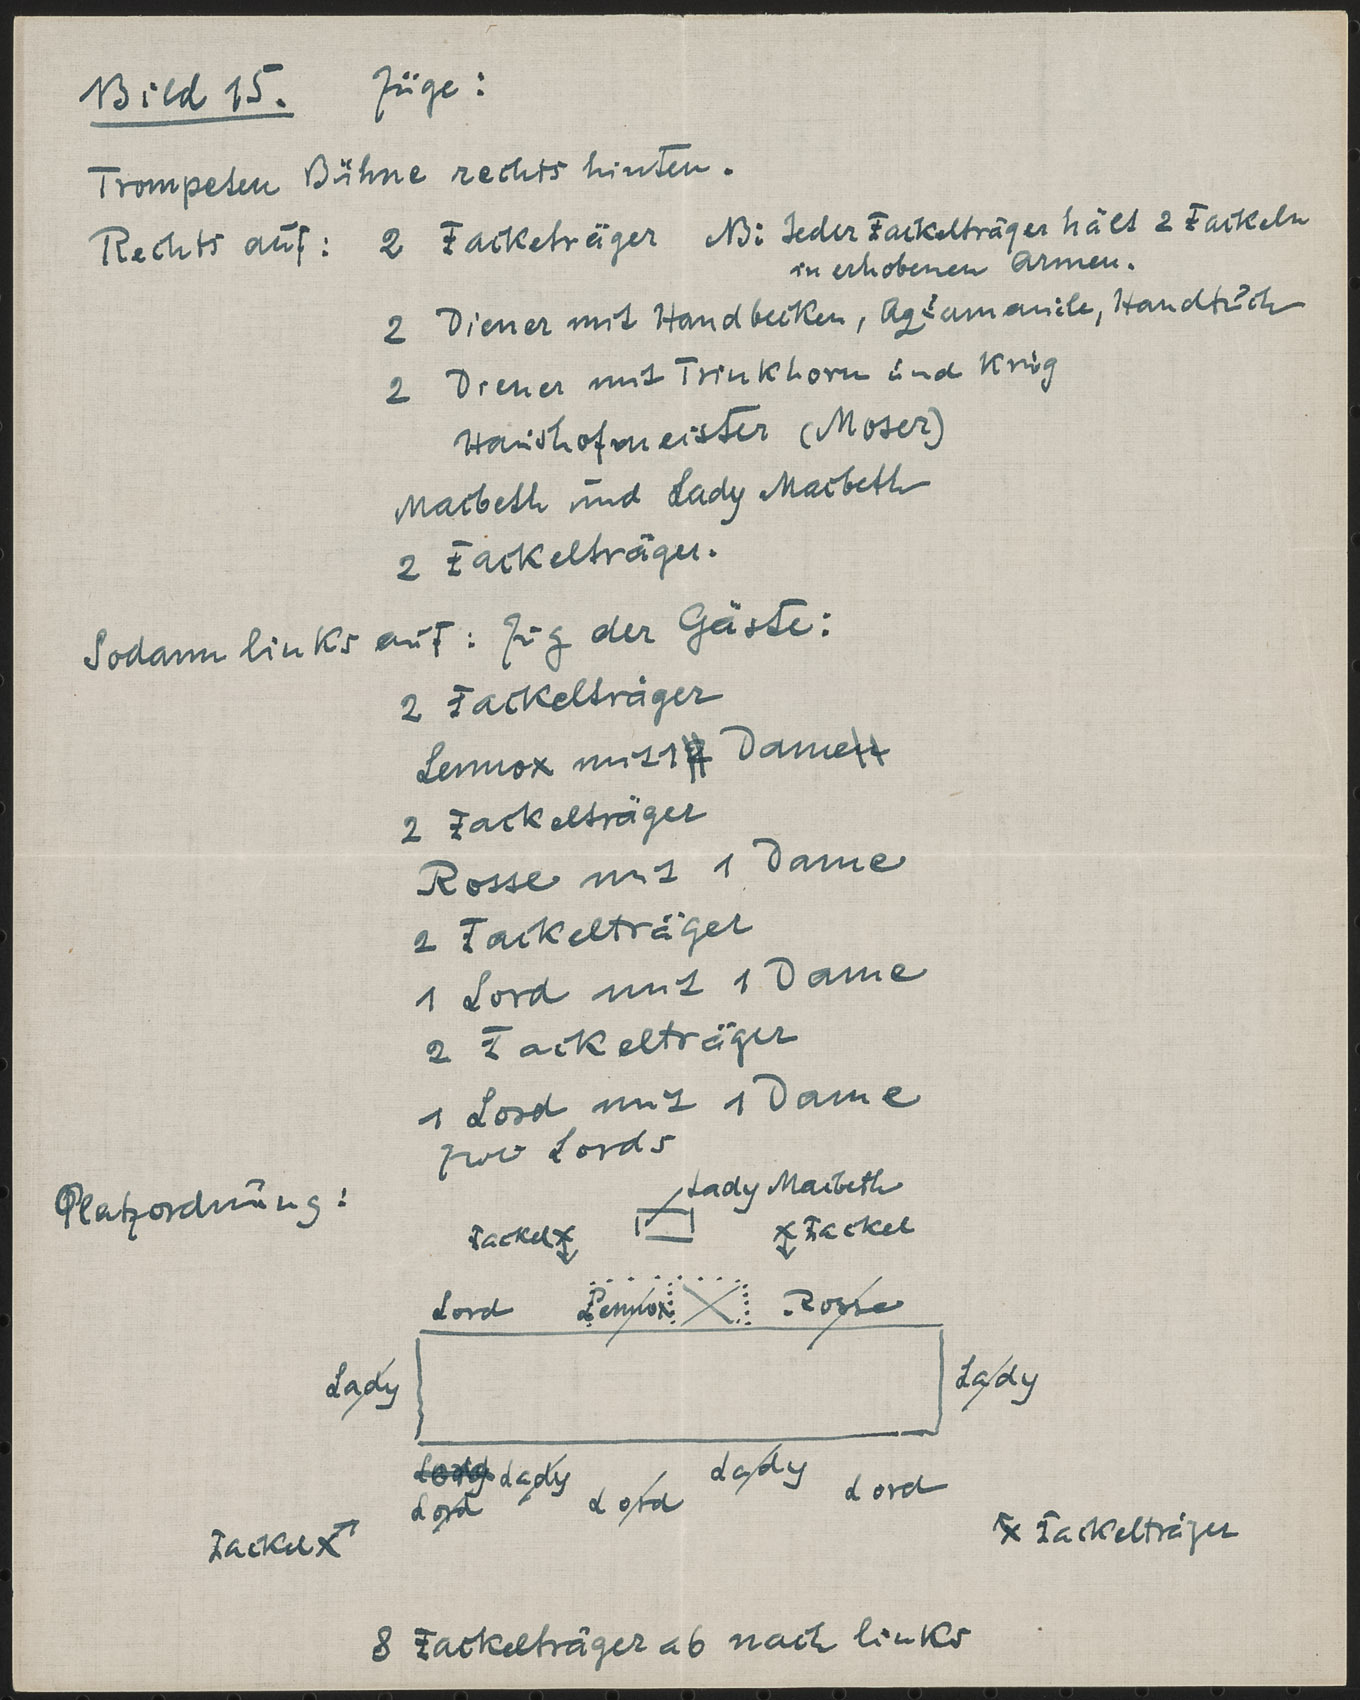 Bild 15. Züge:
Trompeten Bühne rechts hinten.
Rechts auf: 2 Facketräger NB: Jeder Fackelträger hält 2 Fackeln
in erhobenen Armen.
2 Diener mit Handbecken, Aquamanile, Handtuch
2 Diener mit Trinkhorn und Krug
Haushofmeister (Moser)
Macbeth und Lady Macbeth
2 Fackelträger.
Sodann links auf: Zug der Gäste:
2 Fackelträger
Lennox mit 1 Dame
2 Fackelträger
Rosse mit 1 Dame
2 Fackelträger
1 Lord mit 1 Dame
2 Fackelträger
1 Lord mit 1 Dame
zwei Lords
Platzordnung:
Lady Macbeth
Fackel x x Fackel
Lord Lennox Rosse
Lady Lady
Lady Lady Lord
Lord Lord
Fackel x x Fackelträger
8 Fackelträger ab nach links